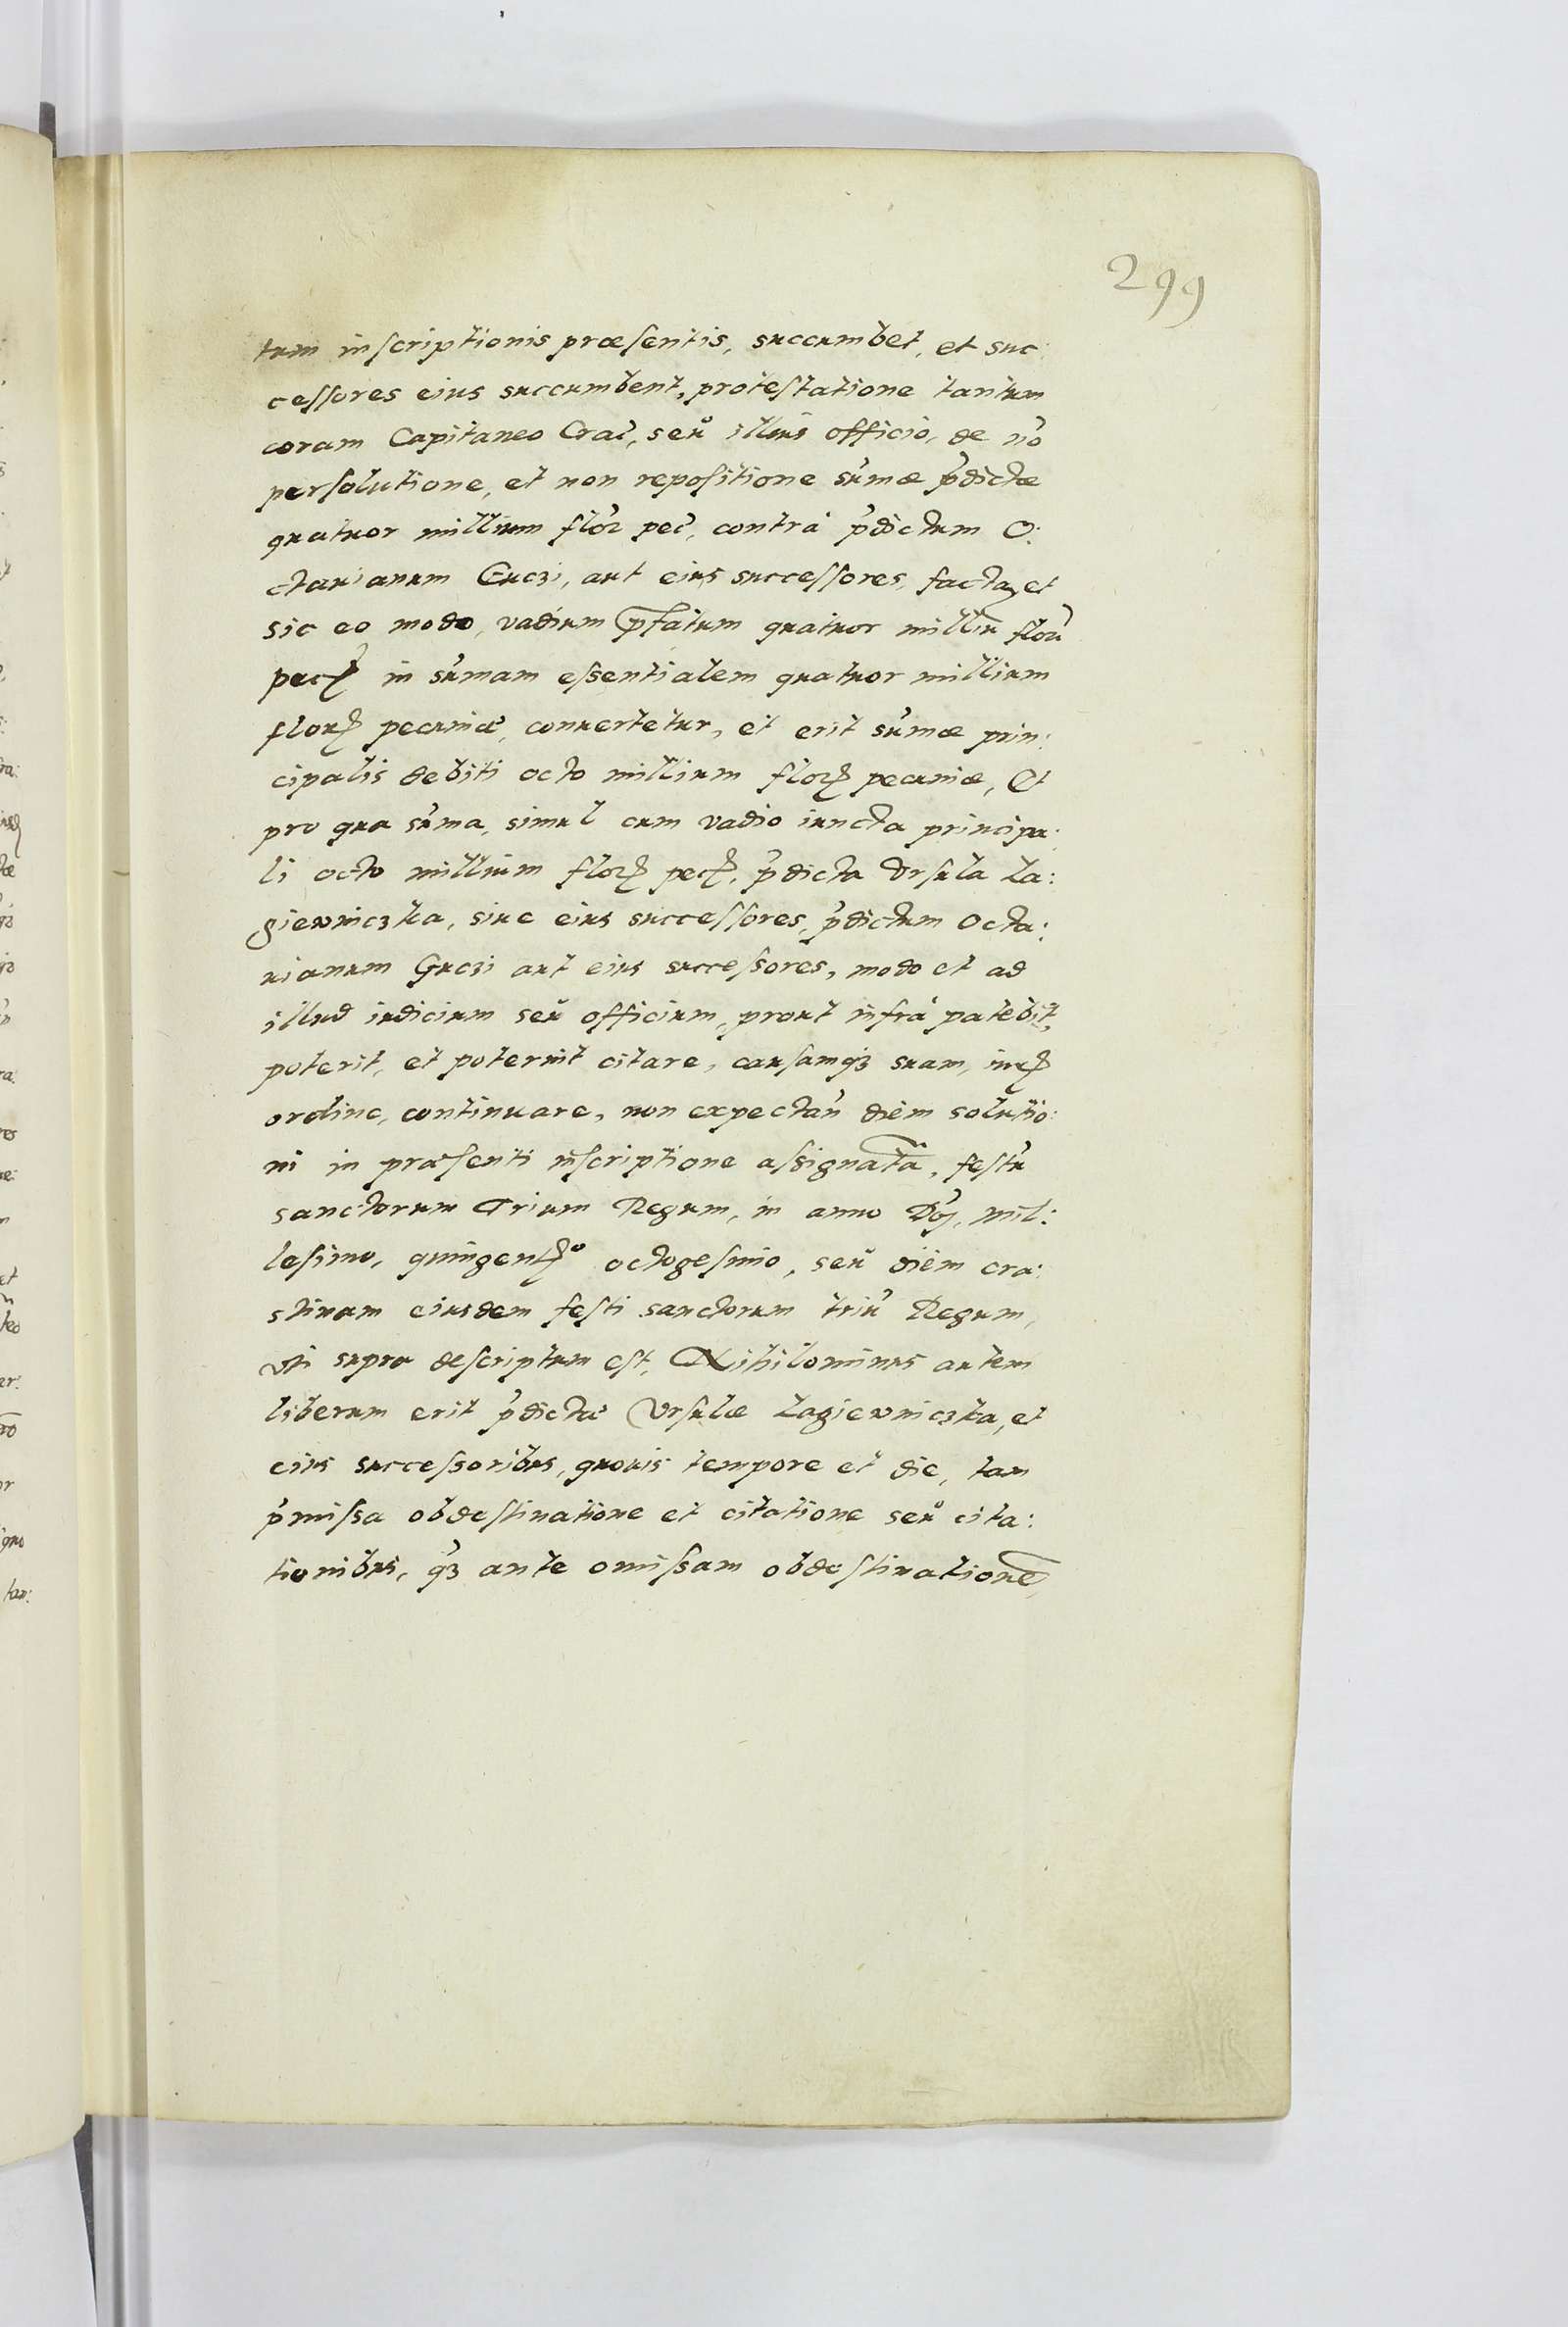 299
tum inscriptionis præsentis, succumbet, et suc:
cessores eius succumbent, protestatione tantum
coram Capitaneo Crac̃, seu illius officio, de nõ
persolutione, et non repositione sum̃æ p̃dictæ
quatuor millium flor̃ pec̃, contrà p̃dictum O:
ctauianum Guczi, aut eius successores, facta, et
sic eo modo, vadium p̃fatum quatuor milliũ florũ
pecꝭ in sum̃am essentialem quatuor millium
florꝭ pecuniæ, conuertetur, et erit sum̃æ prin:
cipalis debiti octo millium florꝭ pecuniæ, Et
pro qua sum̃a, simul cum vadio iuncta principa:
li octo millium florꝭ pecꝭ, p̃dicta Vrsula La:
giewniczka, siue eius successores, p̃dictum Octa:
uianum Guczi aut eius successores, modo et ad
illud iudicium seu officium, prout infrà patebit,
poterit, et poterint citare, causamqꝫ suam, iurꝭ
ordine, continuare, non expectañ diem solutio:
ni in præsenti inscriptione assignatã, festũ
sanctorum Trium Regum, in anno Dñj, mil:
lesimo, quingentꝭo octogesimo, seu diem cra:
stinam eiusdem festi sanctorum triũ Regum,
vti supra descriptum est, Nihilominus autem
liberum erit p̃dictæ Vrsulæ Lagiewniczka, et
eius successoribus, quouis tempore et die, tam
p̃missa obdestinatione et citatione seu cita:
tionibus, q̃ꝫ ante omissam obdestinationẽ,